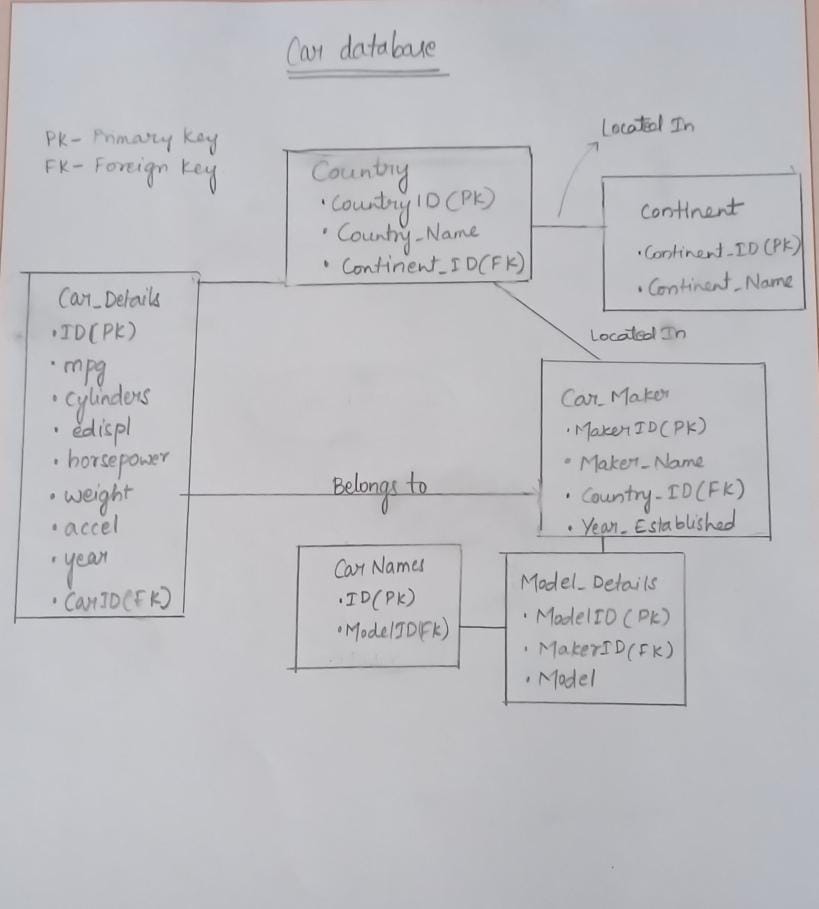 Car database
PK- Primary Key
FK- Foreign Key
Located In
Country
• CountryID(PK)
• Country_Name
• Continent_ID(FK)
Continent
• Continent_ID(PK)
• Continent_Name
Car_Details
• ID(PK)
• mpg
• cylinders
• edispl
• horsepower
• weight
• accel
• year
• CarID(FK)
Located In
Car_Maker
• MakerID(PK)
• Maker_Name
• Country_ID(FK)
• Year_Established
Belongs to
Car Names
• ID(PK)
• ModelID(FK)
Model_Details
• ModelID(PK)
• MakerID(FK)
• Model